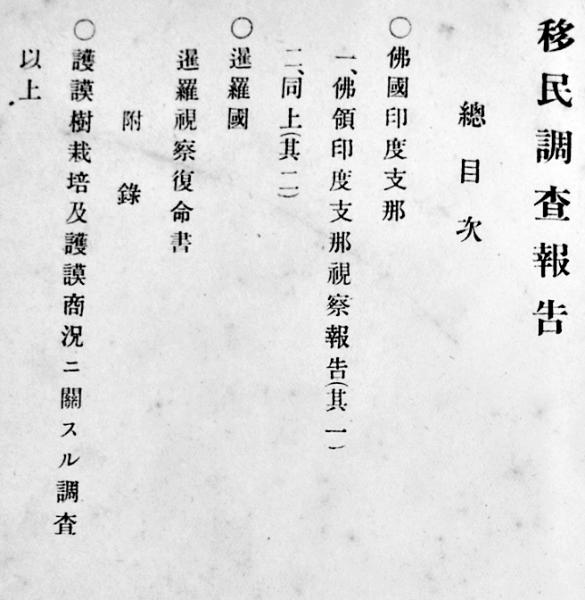 移民調査報告
總目次
〇佛國印度支那
一、佛領印度支那視察報告(其一)
二、同上(其二)
〇暹羅國
暹羅視察復命書
附錄
〇護謨樹栽培及護謨商況ニ關スル調査
以上